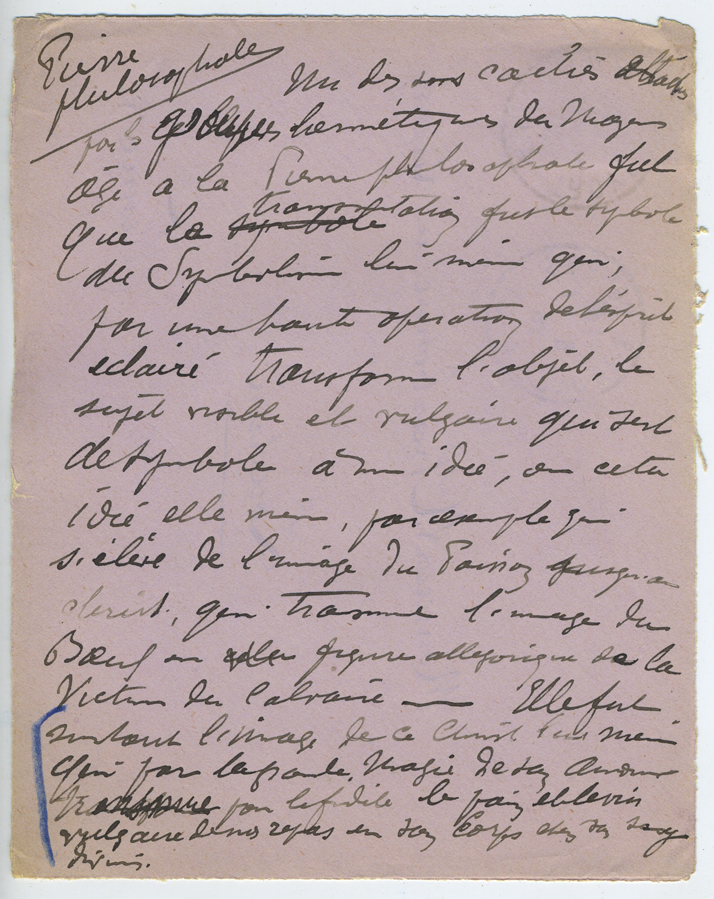 Pierre
philosophale
Un des sens cachés attachés
par les groupes hermétiques du Moyen
âge a la Pierre philosophale fut
que la transmutation fut le symbole
du Symbolisme lui même qui,
par une haute operation de l'esprit
eclairé transforme l'objet, le
sujet visible et vulgaire qui sert
de symbole à une idée, en cette
idée elle même, par exemple qui
s'élève de l'image du Poisson jusqu'au
christ, qui transmue l'image du
Bœuf en figure allegorique de la
Victime du Calvaire — Elle fut
surtout l'image de ce Christ lui même
qui par la grande Magie de son Amour
transmue pour le fidèle le pain et le vin
vulgaire de nos repas en son Corps et en son sang
divins.